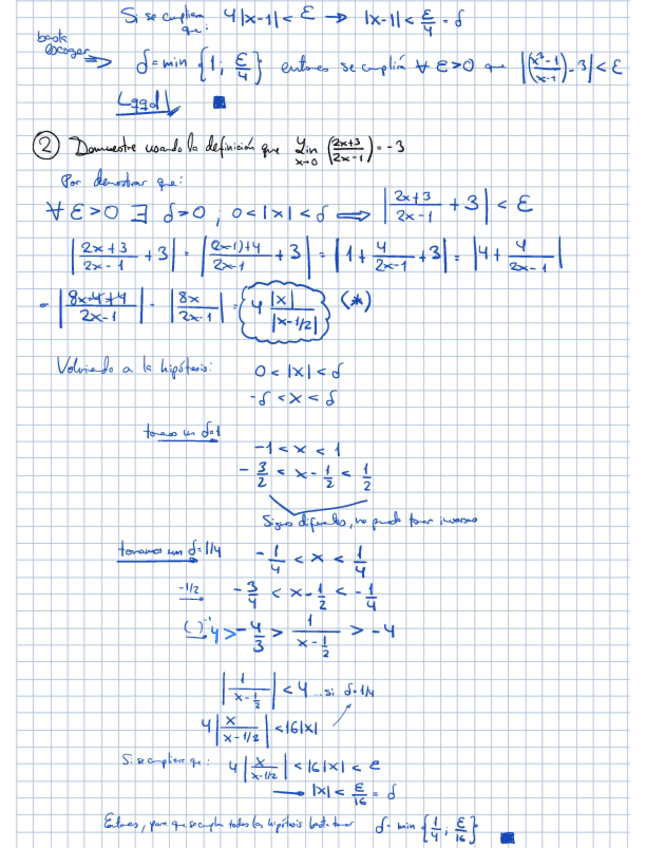 Si se cumpliera que: 4|x-1| < ε → |x-1| < ε/4 = δ
basta escoger ⟹ δ = min {1; ε/4} entonces se cumplirá ∀ ε>0 que |(x³-1/x-1) - 3| < ε
Lqqd
② Demuestre usando la definición que Lim x→0 (2x+3/2x-1) = -3
Por demostrar que:
∀ ε>0 ∃ δ>0, 0<|x|<δ ⟹ |2x+3/2x-1 + 3| < ε
|2x+3/2x-1 + 3| = |(2x-1)+4/2x-1 + 3| = |1 + 4/2x-1 + 3| = |4 + 4/2x-1|
= |8x-4+4/2x-1| = |8x/2x-1| = 4 |x|/|x-1/2| (*)
Volviendo a la hipótesis: 0 < |x| < δ
-δ < x < δ
tomemos un δ=1
-1 < x < 1
-3/2 < x - 1/2 < 1/2
Signos diferentes, no puedo tomar inversos
tomamos un δ=1/4 -1/4 < x < 1/4
-1/2 -3/4 < x - 1/2 < -1/4
( )⁻¹ 4 > -4/3 > 1/x-1/2 > -4
|1/x-1/2| < 4 ... si δ=1/4
4|x/x-1/2| < 16|x|
Si se cumpliera que: 4|x/x-1/2| < 16|x| < ε
→ |x| < ε/16 = δ
Entonces, para que se cumplan todas las hipótesis basta tomar δ = min {1/4; ε/16}